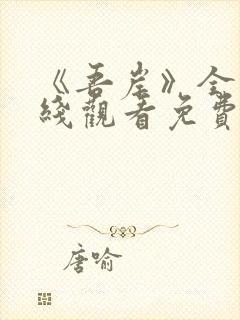 《吾岸》全
綫觀看免費
唐喻